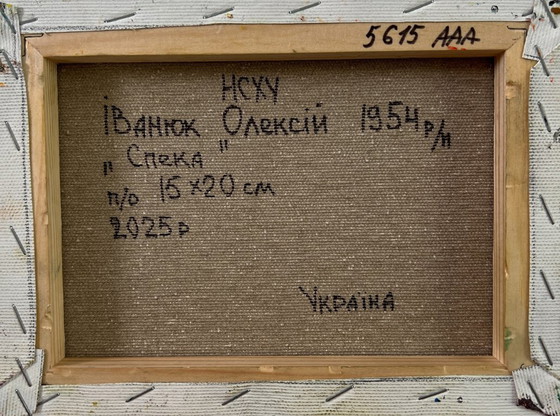 5615 ААА
НСХУ
Іванюк Олексій 1954 р/н
"Спека"
п/о 15×20 см
2025р
Україна